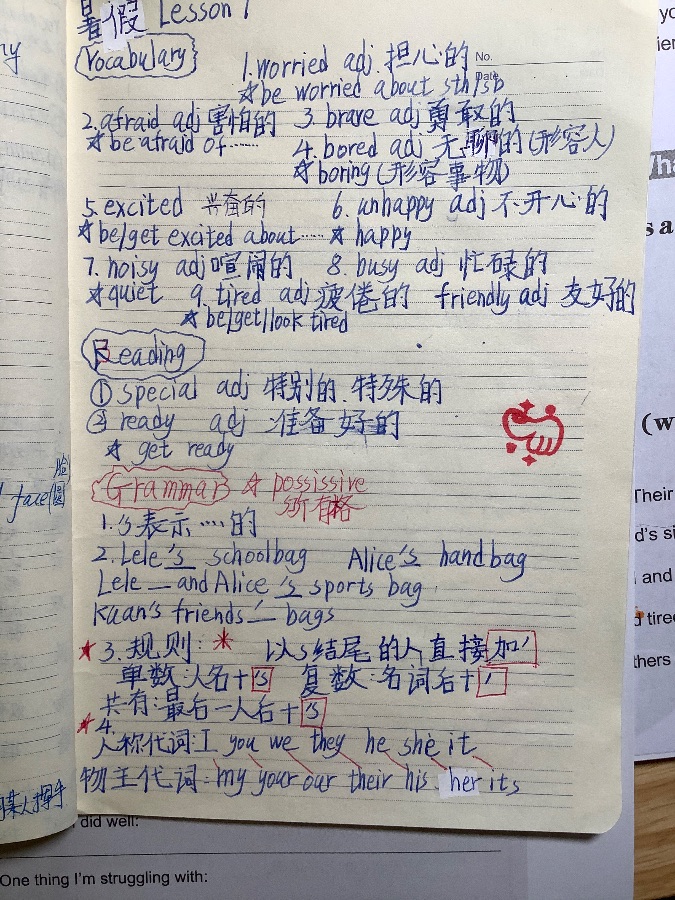 暑假 Lesson 1
Vocabulary
1.worried adj.担心的
No.
Date
☆be worried about sth/sb
2.afraid adj 害怕的 3 brave adj 勇敢的
☆be afraid of…… 4.bored adj 无聊的(形容人)
☆boring(形容事物)
5.excited 兴奋的 6.unhappy adj 不开心的
☆be/get excited about…… ☆ happy
7.noisy adj 喧闹的 8.busy adj 忙碌的
☆quiet 9.tired adj 疲倦的 friendly adj 友好的
☆be/get/look tired
Reading
①special adj 特别的.特殊的
②ready adj 准备好的
☆ get ready
Grammar ☆ possissive
所有格
1.'s表示……的
2.Lele 's schoolbag Alice's handbag
Lele — and Alice 's sports bag
Kaan's friends' — bags
★3.规则: * 以s结尾的人直接加'
单数:人名+'s 复数:名词后+'
共有:最后一人后+'s
★4.
人称代词:I you we they he she it
物主代词:my your our their his her its
face
脸
圆
did well:
One thing I'm struggling with:
(w
Their
d's si
and
tired
thers
s a